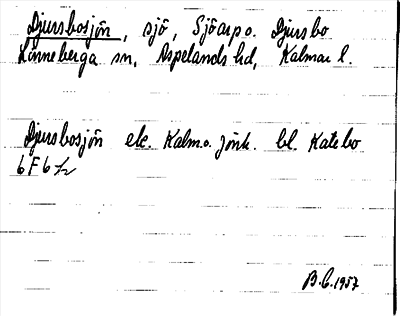 Djursbosjön, sjö, Sjöarp o. Djursbo
Lönneberga sn, Aspelands hd, Kalmar l.
Djursbosjön ek. Kalm. o. jönk. bl. Katebo
6 F 6
B.C. 1957